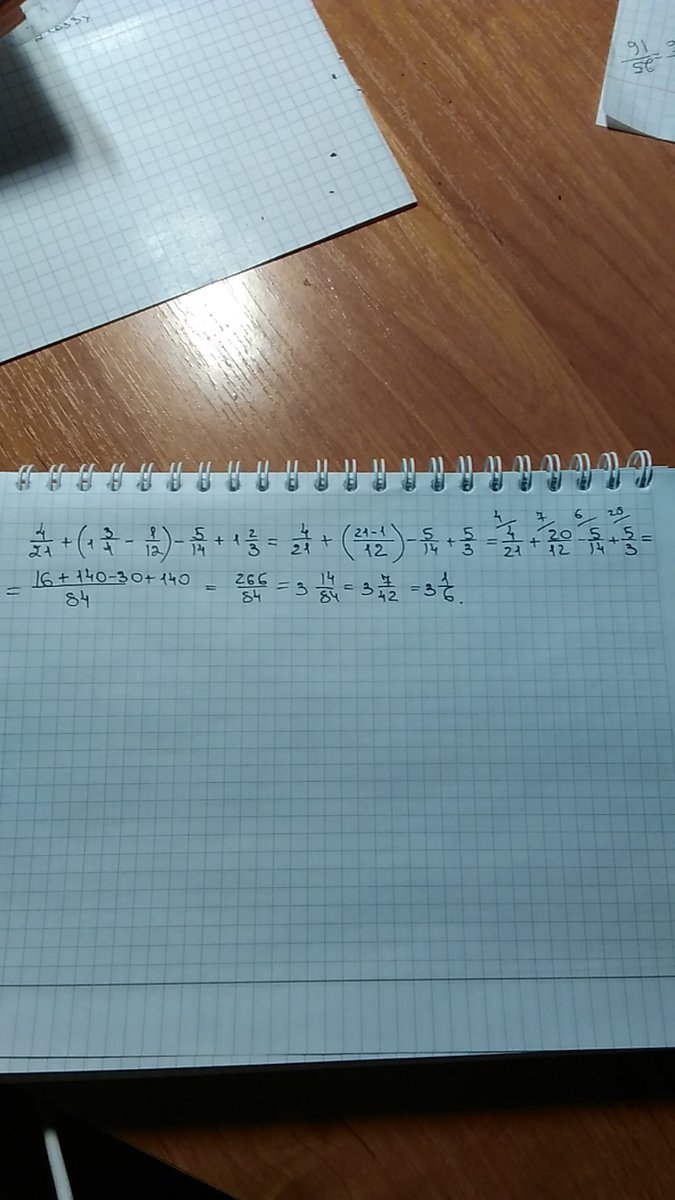 4/21 + (1 3/4 - 1/12) - 5/14 + 1 2/3 = 4/21 + (21-1/12) - 5/14 + 5/3 = 4/ 4/21 + 7/ 20/12 - 6/ 5/14 + 28/ 5/3 =
= 16+140-30+140/84 = 266/84 = 3 14/84 = 3 7/42 = 3 1/6.
16/56 =